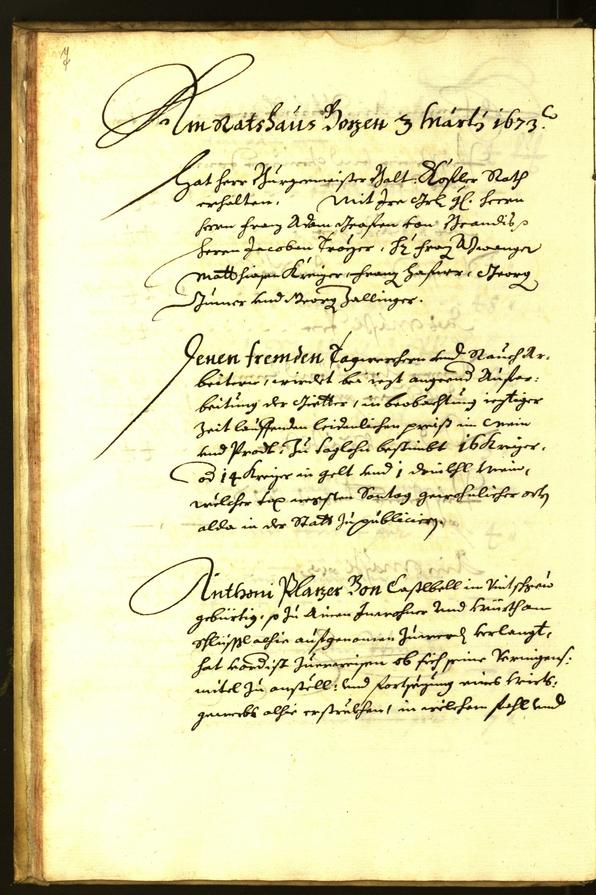 Am Ratshaus Botzen 3 Marty 1673.
Hat herr Burgermaister Balt: Rössler Rath
erhalten, Mit Ire Gel herrn
herrn Franz Adam Grafen von Brandiß
herrn Jacoben Tröyer, Hr Franz
Matthiasen Kreizer, Franz Hafner, Georg
Zimer und Georg Zallinger.
Jenen fremden Tagwerchern und Rauch Ar-
beitern, wierdet bei yezt angeend Aufar-
beitung der Güetter, in beobachtung yeziger
Zeit lauffenden leidenlichen preiß in Wein
und Prodt, Zu Taglohn bestimbt 16 Kreizer,
od 14 Kreizer in gelt und 1 Wein,
welcher tax negsten Sontag gewohnlicher orth
alda in der Statt Zu publicieren.
Anthoni Plazer Von Castlbell in Vintschgew
gebürtig, so Zu Ainen Inwohner und
alhie aufgenomen Zuwerd verlangt,
hat vordist Zuerweisen ob sich seine Vermigens-
mitel Zu anstell: und fortsezung eines
gewerbs alhie erströkhen, in welchem fahl und